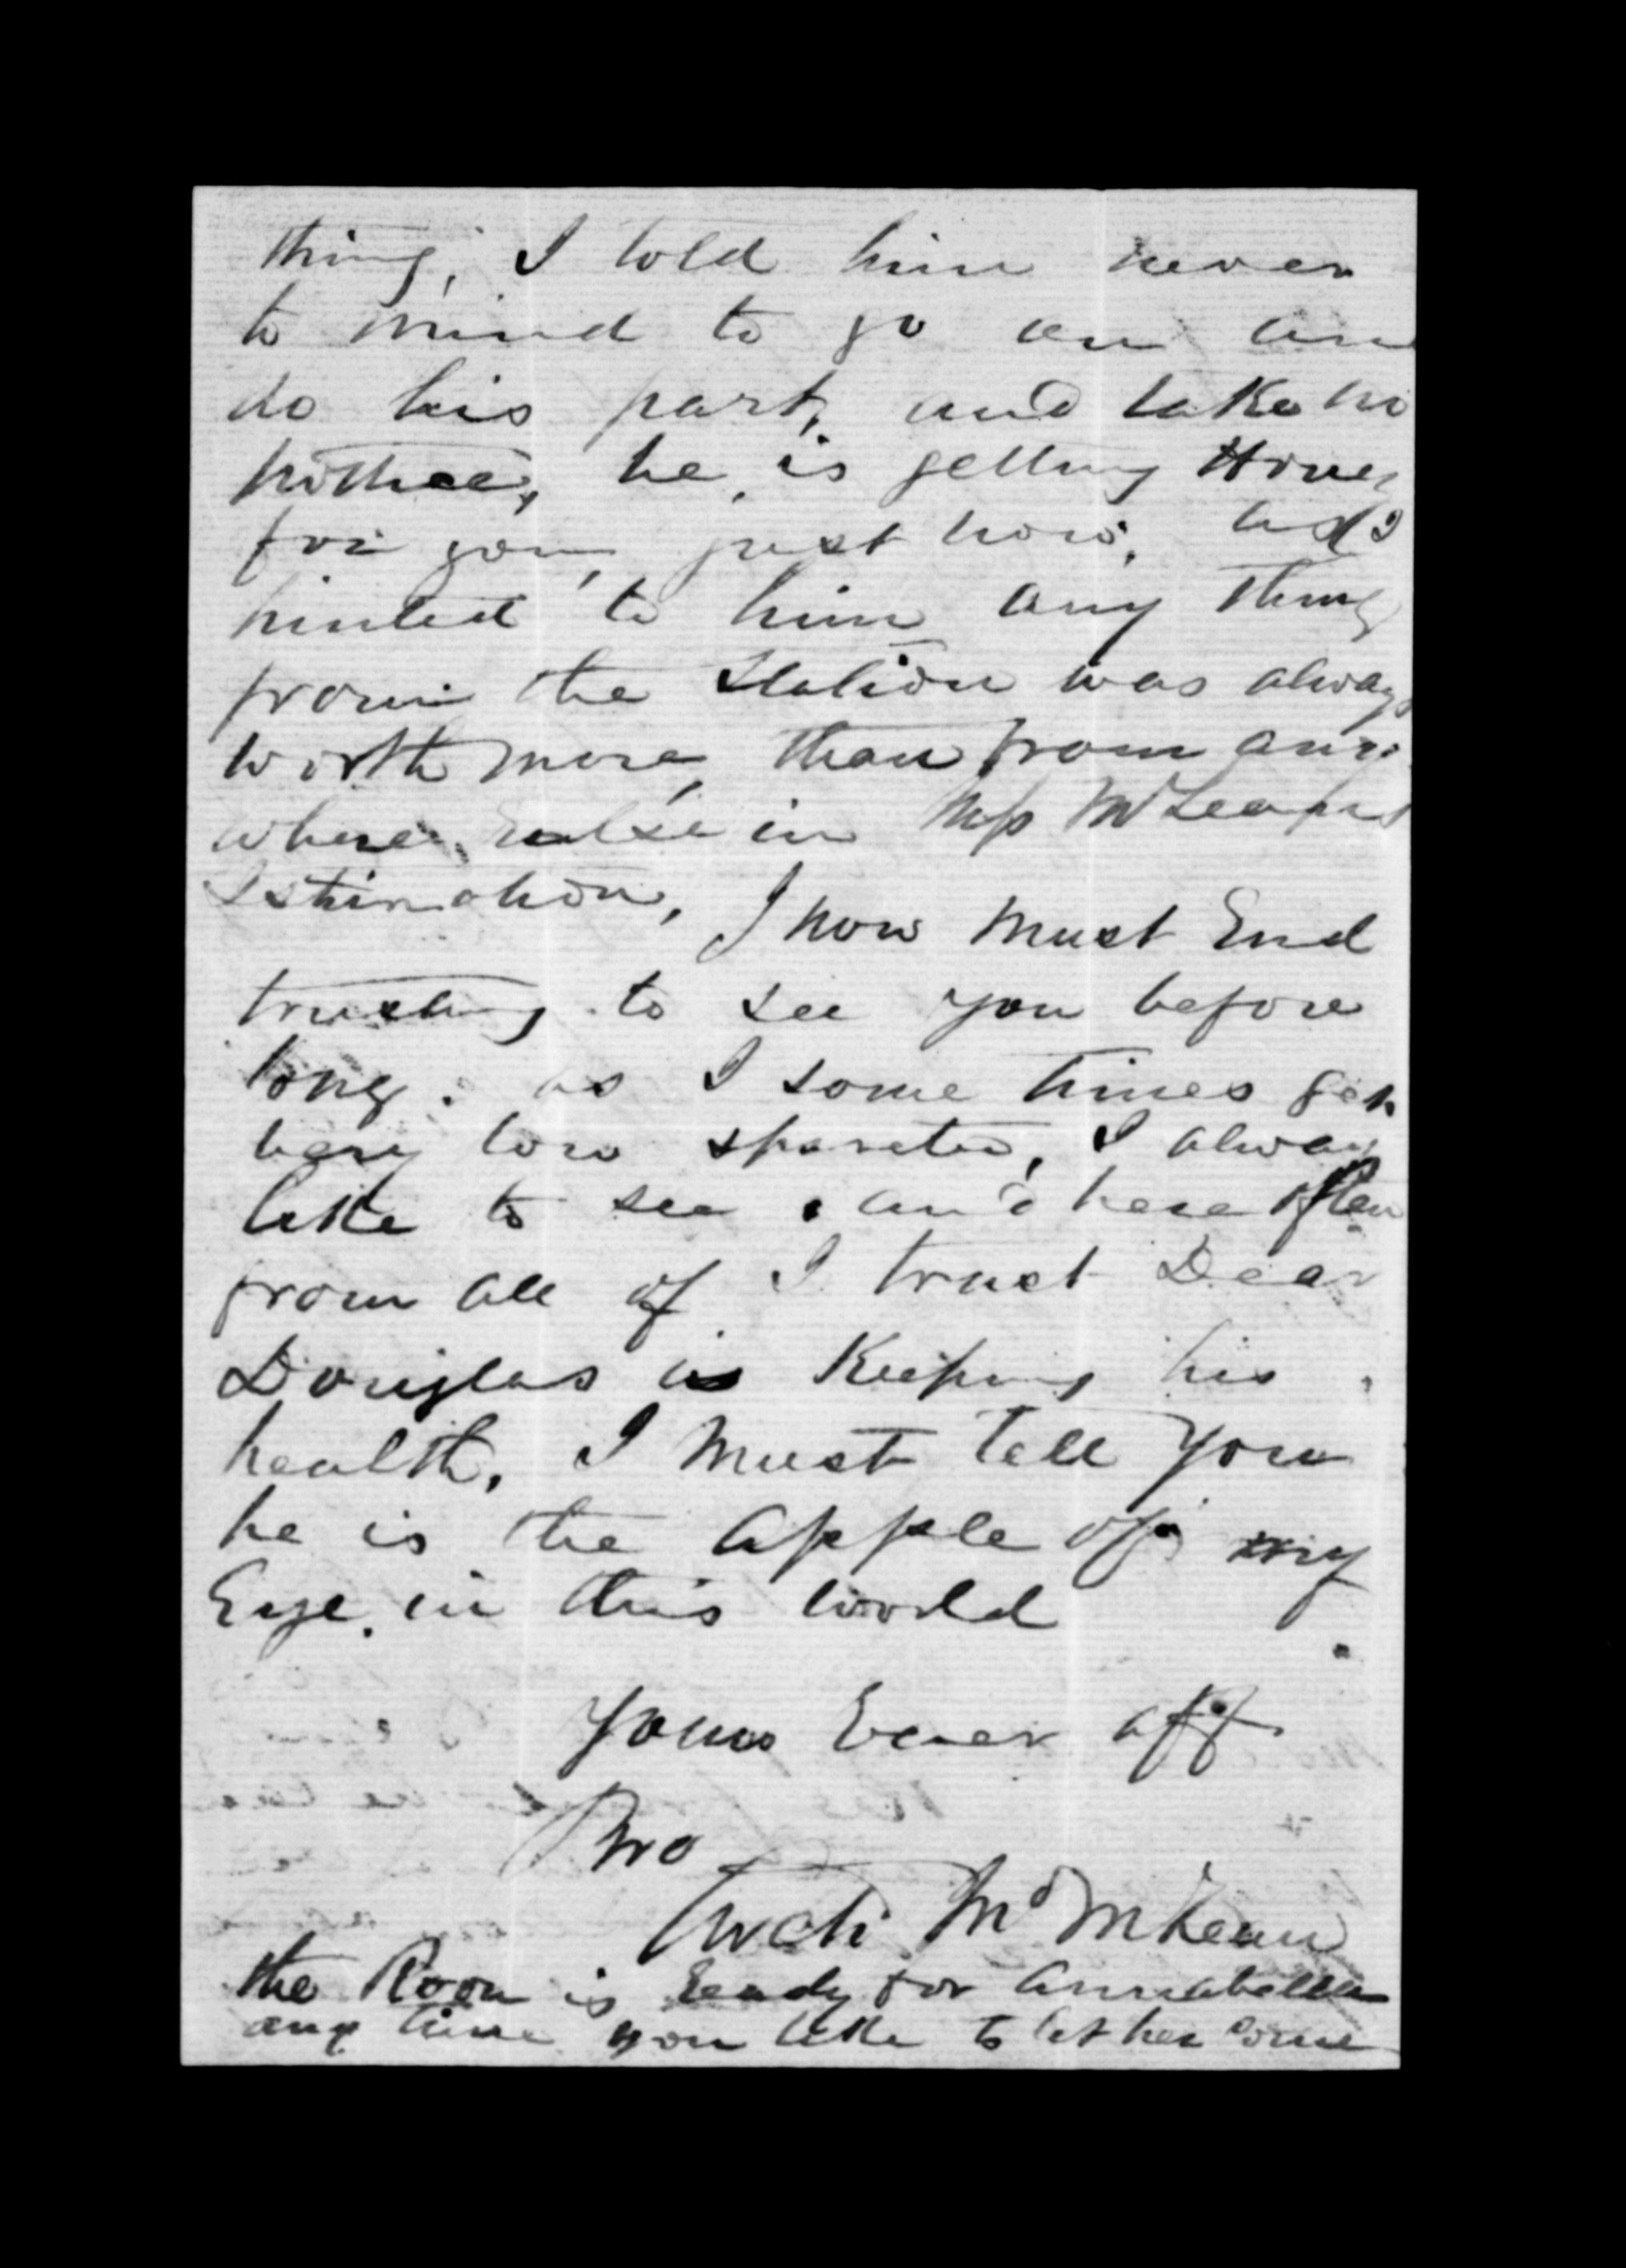 thing, I told him never
to mind to go on an
do his part, and take no
nothice, he is getting
for you, just now, as I
hinted to him any thing
from the Station was always
worth more, than from any
where, in McLeans
Estimation, I now must End
trusting to see you before
long. as I some times get
very low I always
like to see and here often
from all of I trust Dear
Douglas is Keeping his
health, I must tell you
he is the apple of my
Eye in this world
yours Ever aff
Bro
Archd.
the Room is Ready for Annabella
any time you like to let her come